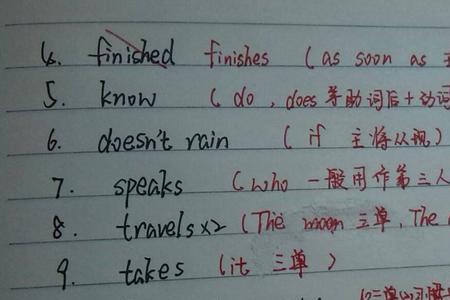 4. finished finishes (as soon as
5. know (do, does 等助词后+动词
6. doesn't rain (if 主将从现)
7. speaks (who 一般用作第三人
8. travels x2 (The moon 三单, The
9. takes (it 三单)